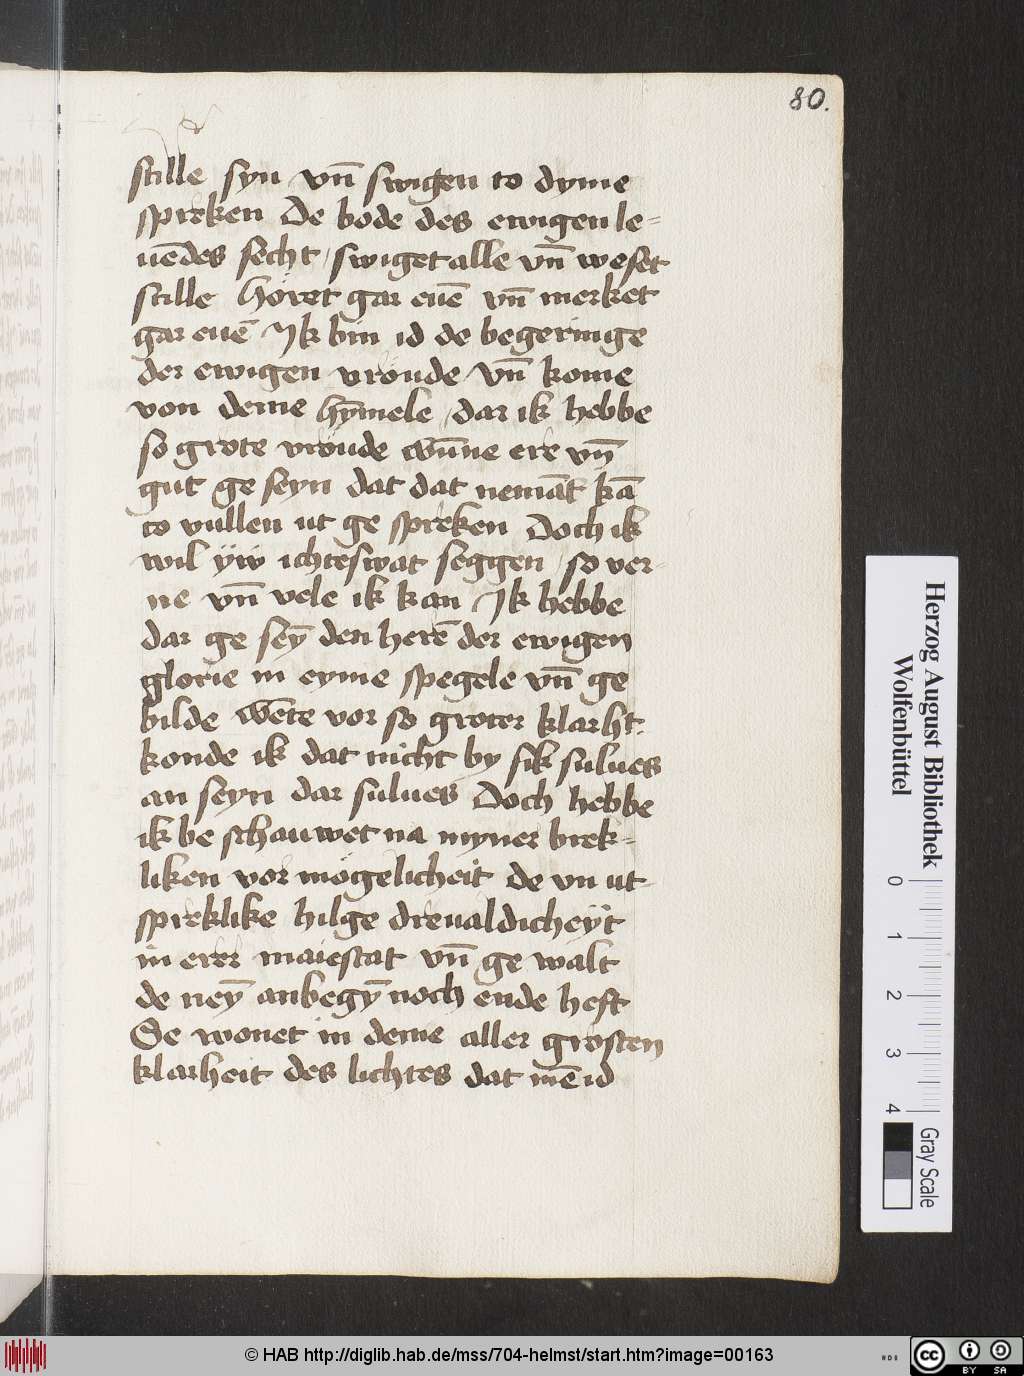 80.
stille syn vn̄ swigen to dyme
spreken De bode des ewigen le-
uēdes secht, swiget alle vn̄ weset
stille Höret gar euē vn̄ merket
gar euē Jk bin id de begeringe
der ewigen vröude vn̄ kome
von deme hȳmele, dar ik hebbe
so grote vröude wūne ere vn̄
gut ge seyn dat dat nemāt kā
to vullen ut ge spreken Doch ik
wil ÿw ichteswat seggen, so ver-
ne vn̄ vele ik kan Jk hebbe
dar ge seȳ den herē der ewigen
glorie in eyme spegele vn̄ ge
bilde wēte vor so groter klarht.
konde ik dat nicht by sik sulues
an seyn dar sulues Doch hebbe
ik be schauwet na myner brek-
liken vor mögelicheit de vn ut-
spreklike hilge dreualdicheÿt
in erer maiestat vn̄ ge walt
de neȳ anbegȳ noch ende heft
Se wonet in deme aller grosten
klarheit des lichtes dat mē id
Herzog August Bibliothek
Wolfenbüttel
0 1 2 3 4
Gray Scale
© HAB http://diglib.hab.de/mss/704-helmst/start.htm?image=00163
HAB
cc BY SA